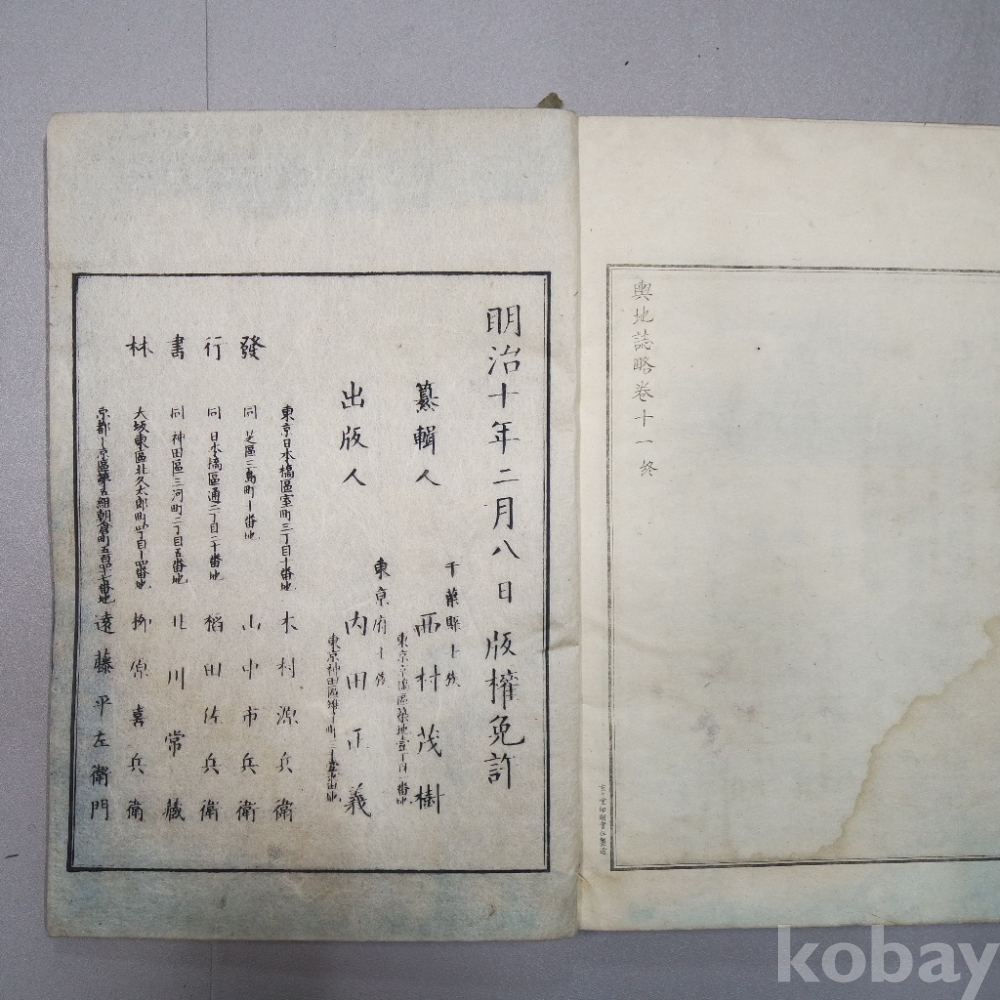 輿地誌略卷十一終
明治十年二月八日版權免許
纂輯人
千葉縣士族
西村茂樹
出版人
東京府士族
内田正義
發行書林
東京日本橋區室町三丁目十番地
木村源兵衛
同芝區三島町十番地
山中市兵衛
同日本橋區通二丁目二十番地
稻田佐兵衛
同神田區三河町二丁目五番地
北川常藏
大坂東區北久太郎町四丁目十四番地
柳原喜兵衛
遠藤平左衛門
kobay